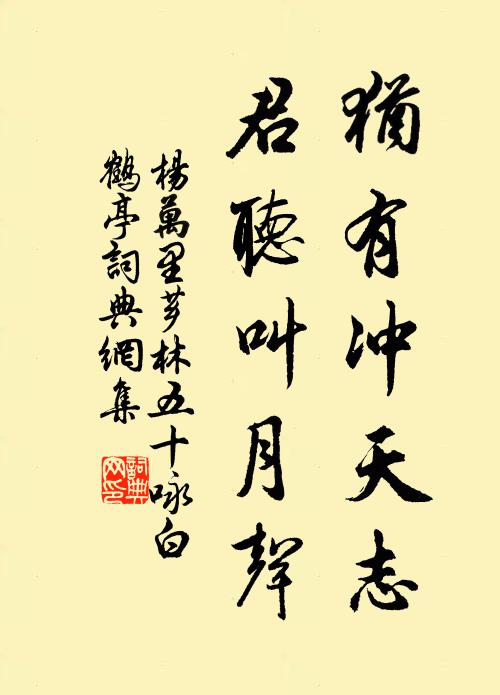 猶有冲天志
君聽叫月聲
楊萬里芗林五十咏白
鶴亭詞典網集
詞典
网印